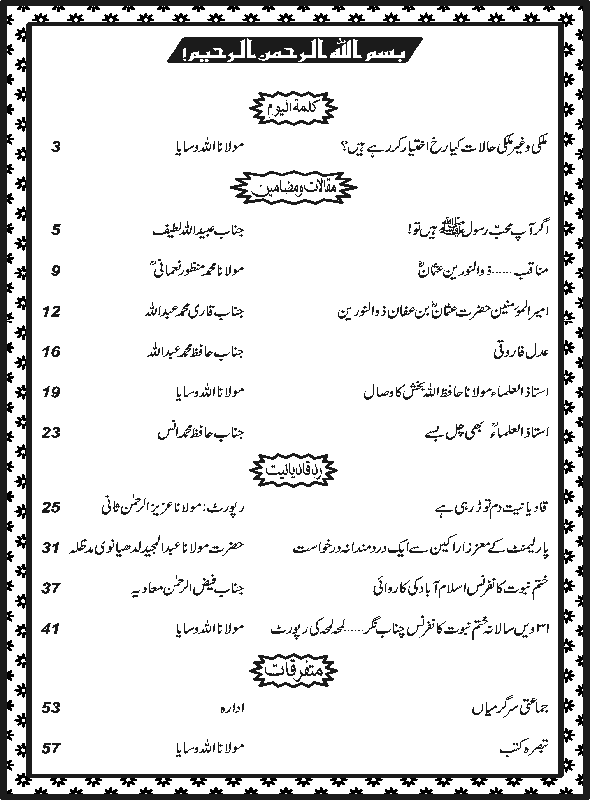 بسم اللہ الرحمن الرحیم!
کلمۃ الیوم
ملکی وغیر ملکی حالات کیا رخ اختیار کر رہے ہیں؟ مولانا اللہ وسایا 3
مقالات ومضامین
اگر آپ محب رسول ﷺ ہیں تو! جناب عبیداللہ لطیف 5
مناقب ...... ذوالنورین عثمانؓ مولانا محمد منظور نعمانیؒ 9
امیر المؤمنین حضرت عثمانؓ بن عفان ذوالنورین جناب قاری محمد عبداللہ 12
عدل فاروقی جناب حافظ محمد عبداللہ 16
استاذ العلماء مولانا حافظ اللہ بخش کا وصال مولانا اللہ وسایا 19
استاذ العلماءؒ بھی چل بسے جناب حافظ محمد انس 23
رد قادیانیت
قادیانیت دم توڑ رہی ہے رپورٹ: مولانا عزیز الرحمن ثانی 25
پارلیمنٹ کے معزز اراکین سے ایک دردمندانہ درخواست حضرت مولانا عبدالمجید لدھیانوی مدظلہ 31
ختم نبوت کانفرنس اسلام آباد کی کاروائی جناب فیض الرحمن معاویہ 37
۳۱ ویں سالانہ ختم نبوت کانفرنس چناب نگر ...... لمحہ لمحہ کی رپورٹ مولانا اللہ وسایا 41
متفرقات
جماعتی سرگرمیاں ادارہ 53
تبصرہ کتب مولانا اللہ وسایا 57